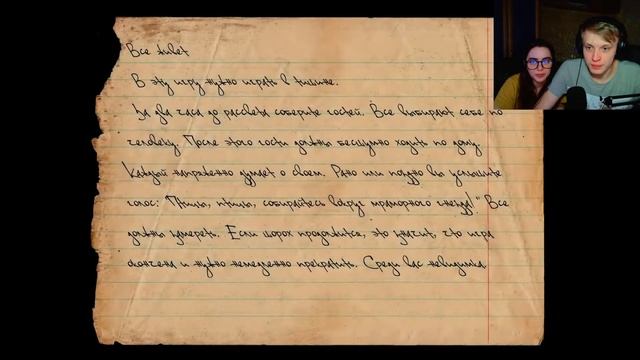 Все живет
В эту игру нужно играть в тишине.
За два часа до рассвета соберите гостей. Все выбирают себе по
человеку. После этого гости должны бесшумно ходить по дому.
Каждый напряженно думает о своем. Рано или поздно вы услышите
голос: "Птицы, птицы, собирайтесь вокруг мраморного гнезда!" Все
должны замереть. Если шорох продолжится, это значит, что игра
окончена и нужно немедленно прекратить. Среди вас невидимка